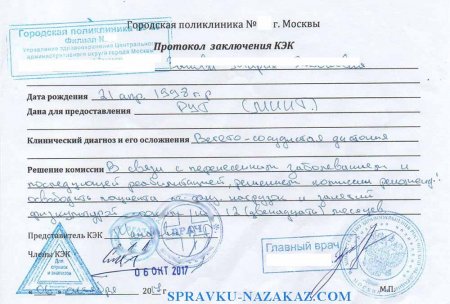 Городская поликлиника
Филиал
Управление здравоохранения Центрального
административного округа города Москвы
Городская поликлиника № г. Москвы
Протокол заключения КЭК
Дата рождения 21 апр. 1998 г.р
Дана для предоставления РУТ (МИИТ)
Клинический диагноз и его осложнения Вегето-сосудистая дистония
Решение комиссии В связи с перенесенным заболеванием и
последующей реабилитацией, решением комиссии
освободить пациента от физ. нагрузок и занятий
физкультурой сроком на 12 (двенадцать) месяцев
Представитель КЭК
Члены КЭК
Для справок и
06 ОКТ 2017
Главный врач
М.П.
SPRAVKU-NAZAKAZ.COM